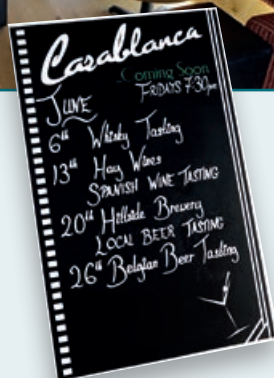 Casablanca
Coming Soon
JUNE FRIDAYS 7:30pm
6th Whisky Tasting
13th Hay Wines
SPANISH WINE TASTING
20th Hillside Brewery
LOCAL BEER TASTING
26th Belgian Beer Tasting